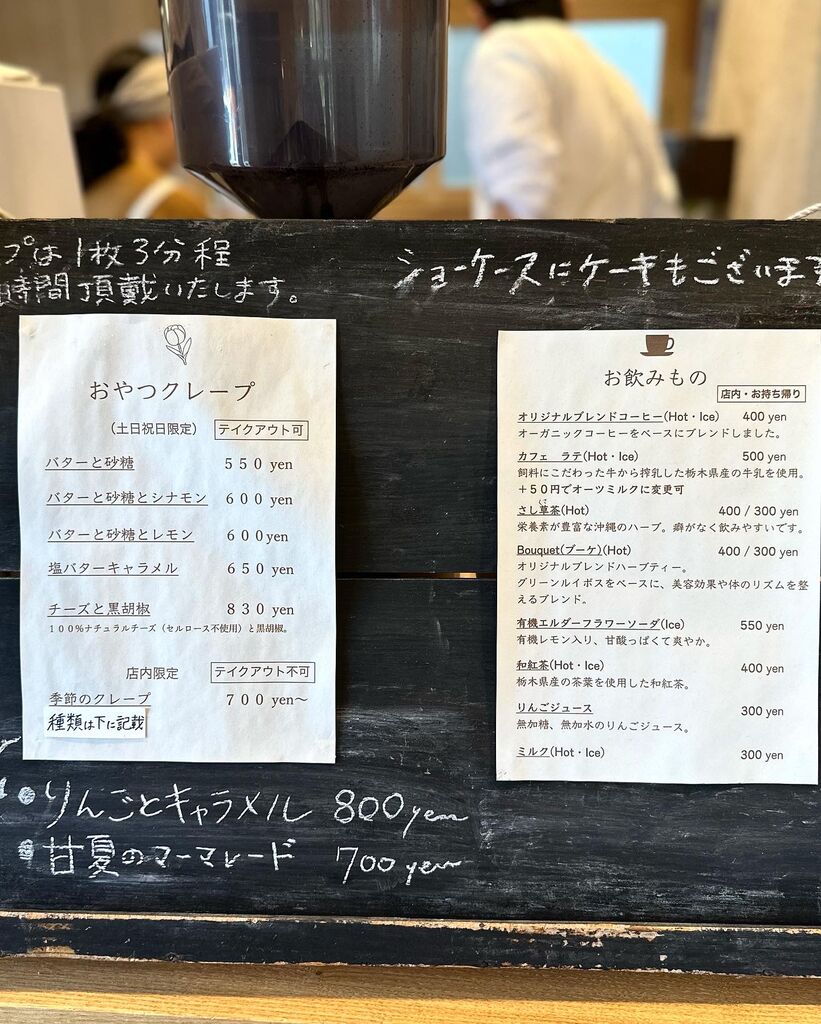 プは1枚3分程
時間頂戴いたします。
ショーケースにケーキもございます
おやつクレープ
(土日祝日限定) テイクアウト可
バターと砂糖 550 yen
バターと砂糖とシナモン 600 yen
バターと砂糖とレモン 600yen
塩バターキャラメル 650 yen
チーズと黒胡椒 830 yen
100%ナチュラルチーズ(セルロース不使用)と黒胡椒。
店内限定 テイクアウト不可
季節のクレープ 700 yen〜
種類は下に記載
お飲みもの
店内・お持ち帰り
オリジナルブレンドコーヒー(Hot・Ice) 400 yen
オーガニックコーヒーをベースにブレンドしました。
カフェ ラテ(Hot・Ice) 500 yen
飼料にこだわった牛から搾乳した栃木県産の牛乳を使用。
+50円でオーツミルクに変更可
さし草茶(Hot) 400 / 300 yen
栄養素が豊富な沖縄のハーブ。癖がなく飲みやすいです。
Bouquet(ブーケ)(Hot) 400 / 300 yen
オリジナルブレンドハーブティー。
グリーンルイボスをベースに、美容効果や体のリズムを整
えるブレンド。
有機エルダーフラワーソーダ(Ice) 550 yen
有機レモン入り、甘酸っぱくて爽やか。
和紅茶(Hot・Ice) 400 yen
栃木県産の茶葉を使用した和紅茶。
りんごジュース 300 yen
無加糖、無加水のりんごジュース。
ミルク(Hot・Ice) 300 yen
●りんごとキャラメル 800 yen
●甘夏のマーマレード 700 yen